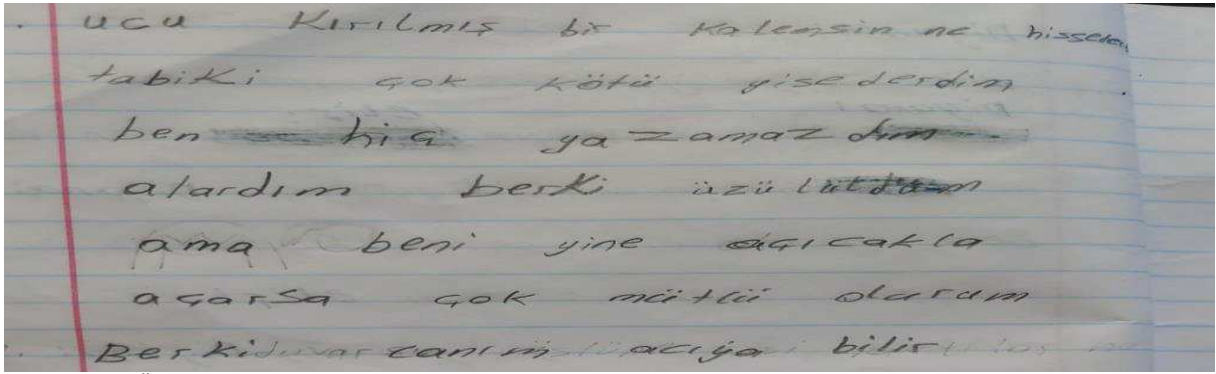 ucu Kırılmış bir Kalemsin ne hisseder
tabiki çok kötü yisederdim
ben hiç yazamazdım
alardım berki üzülütdüm
ama beni yine açıcakla
açarsa çok mütlü olurum
Berki canım acıya bilir